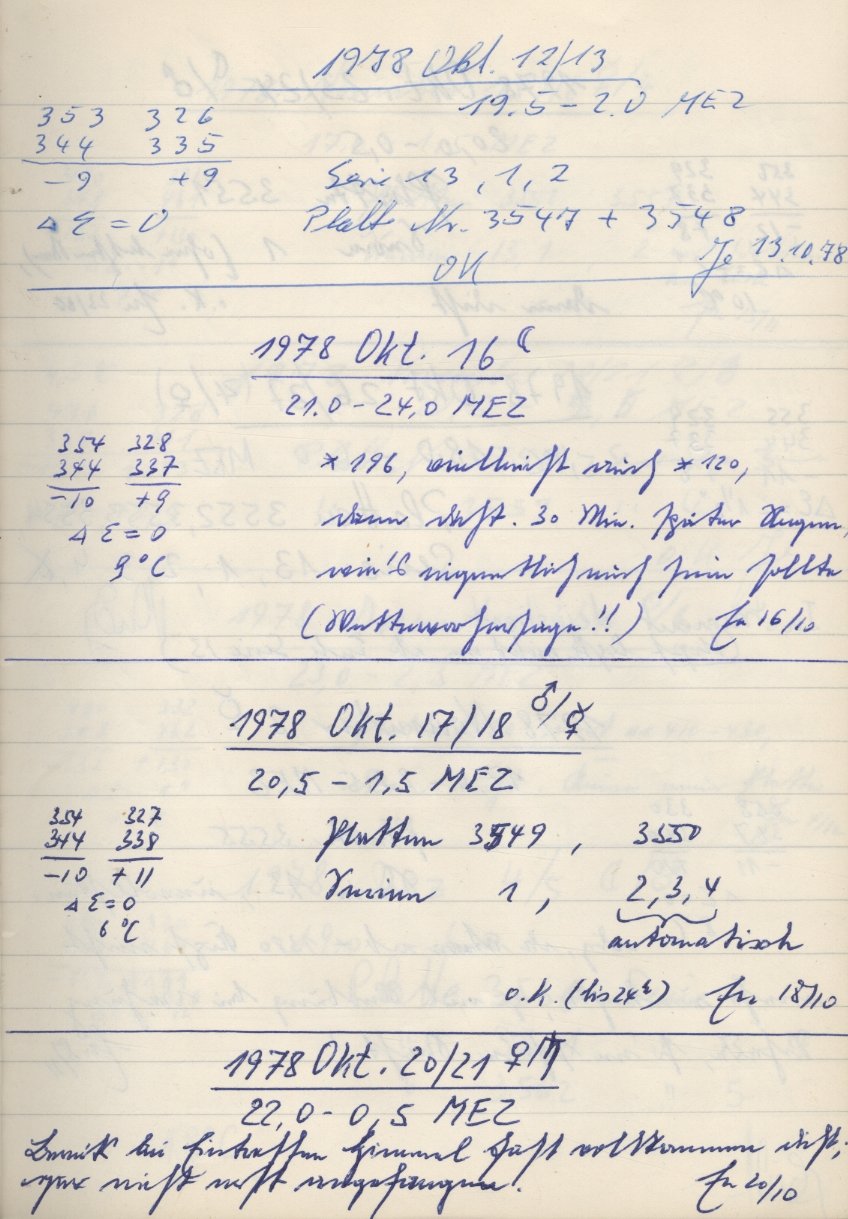 1978 Okt. 12/13
19.5 – 2.0 MEZ
353 326
344 335
–9 +9
Δ Σ = 0
Serie 13, 1, 2
Platt Nr. 3547 + 3548
OK
Je 13.10.78
1978 Okt. 16 ☾
21.0 – 24,0 MEZ
354 328
344 337
–10 +9
Δ Σ = 0
9 °C
* 196, vielleicht auch * 120,
dann dicht. 30 Min. später Regen,
wie's eigentlich auch sein sollte
(Wettervorhersage!!) 16/10
1978 Okt. 17/18 ♂/☿
20,5 – 1,5 MEZ
354 327
344 338
–10 +11
Δ Σ = 0
6 °C
Platten 3549, 3550
Serien 1, 2, 3, 4
automatisch
o.K. (bis 24h) 18/10
1978 Okt. 20/21 ♀/♄
22,0 – 0,5 MEZ
Bereits bei Eintreffen Himmel fast vollkommen dicht,
gar nicht erst angefangen. 20/10